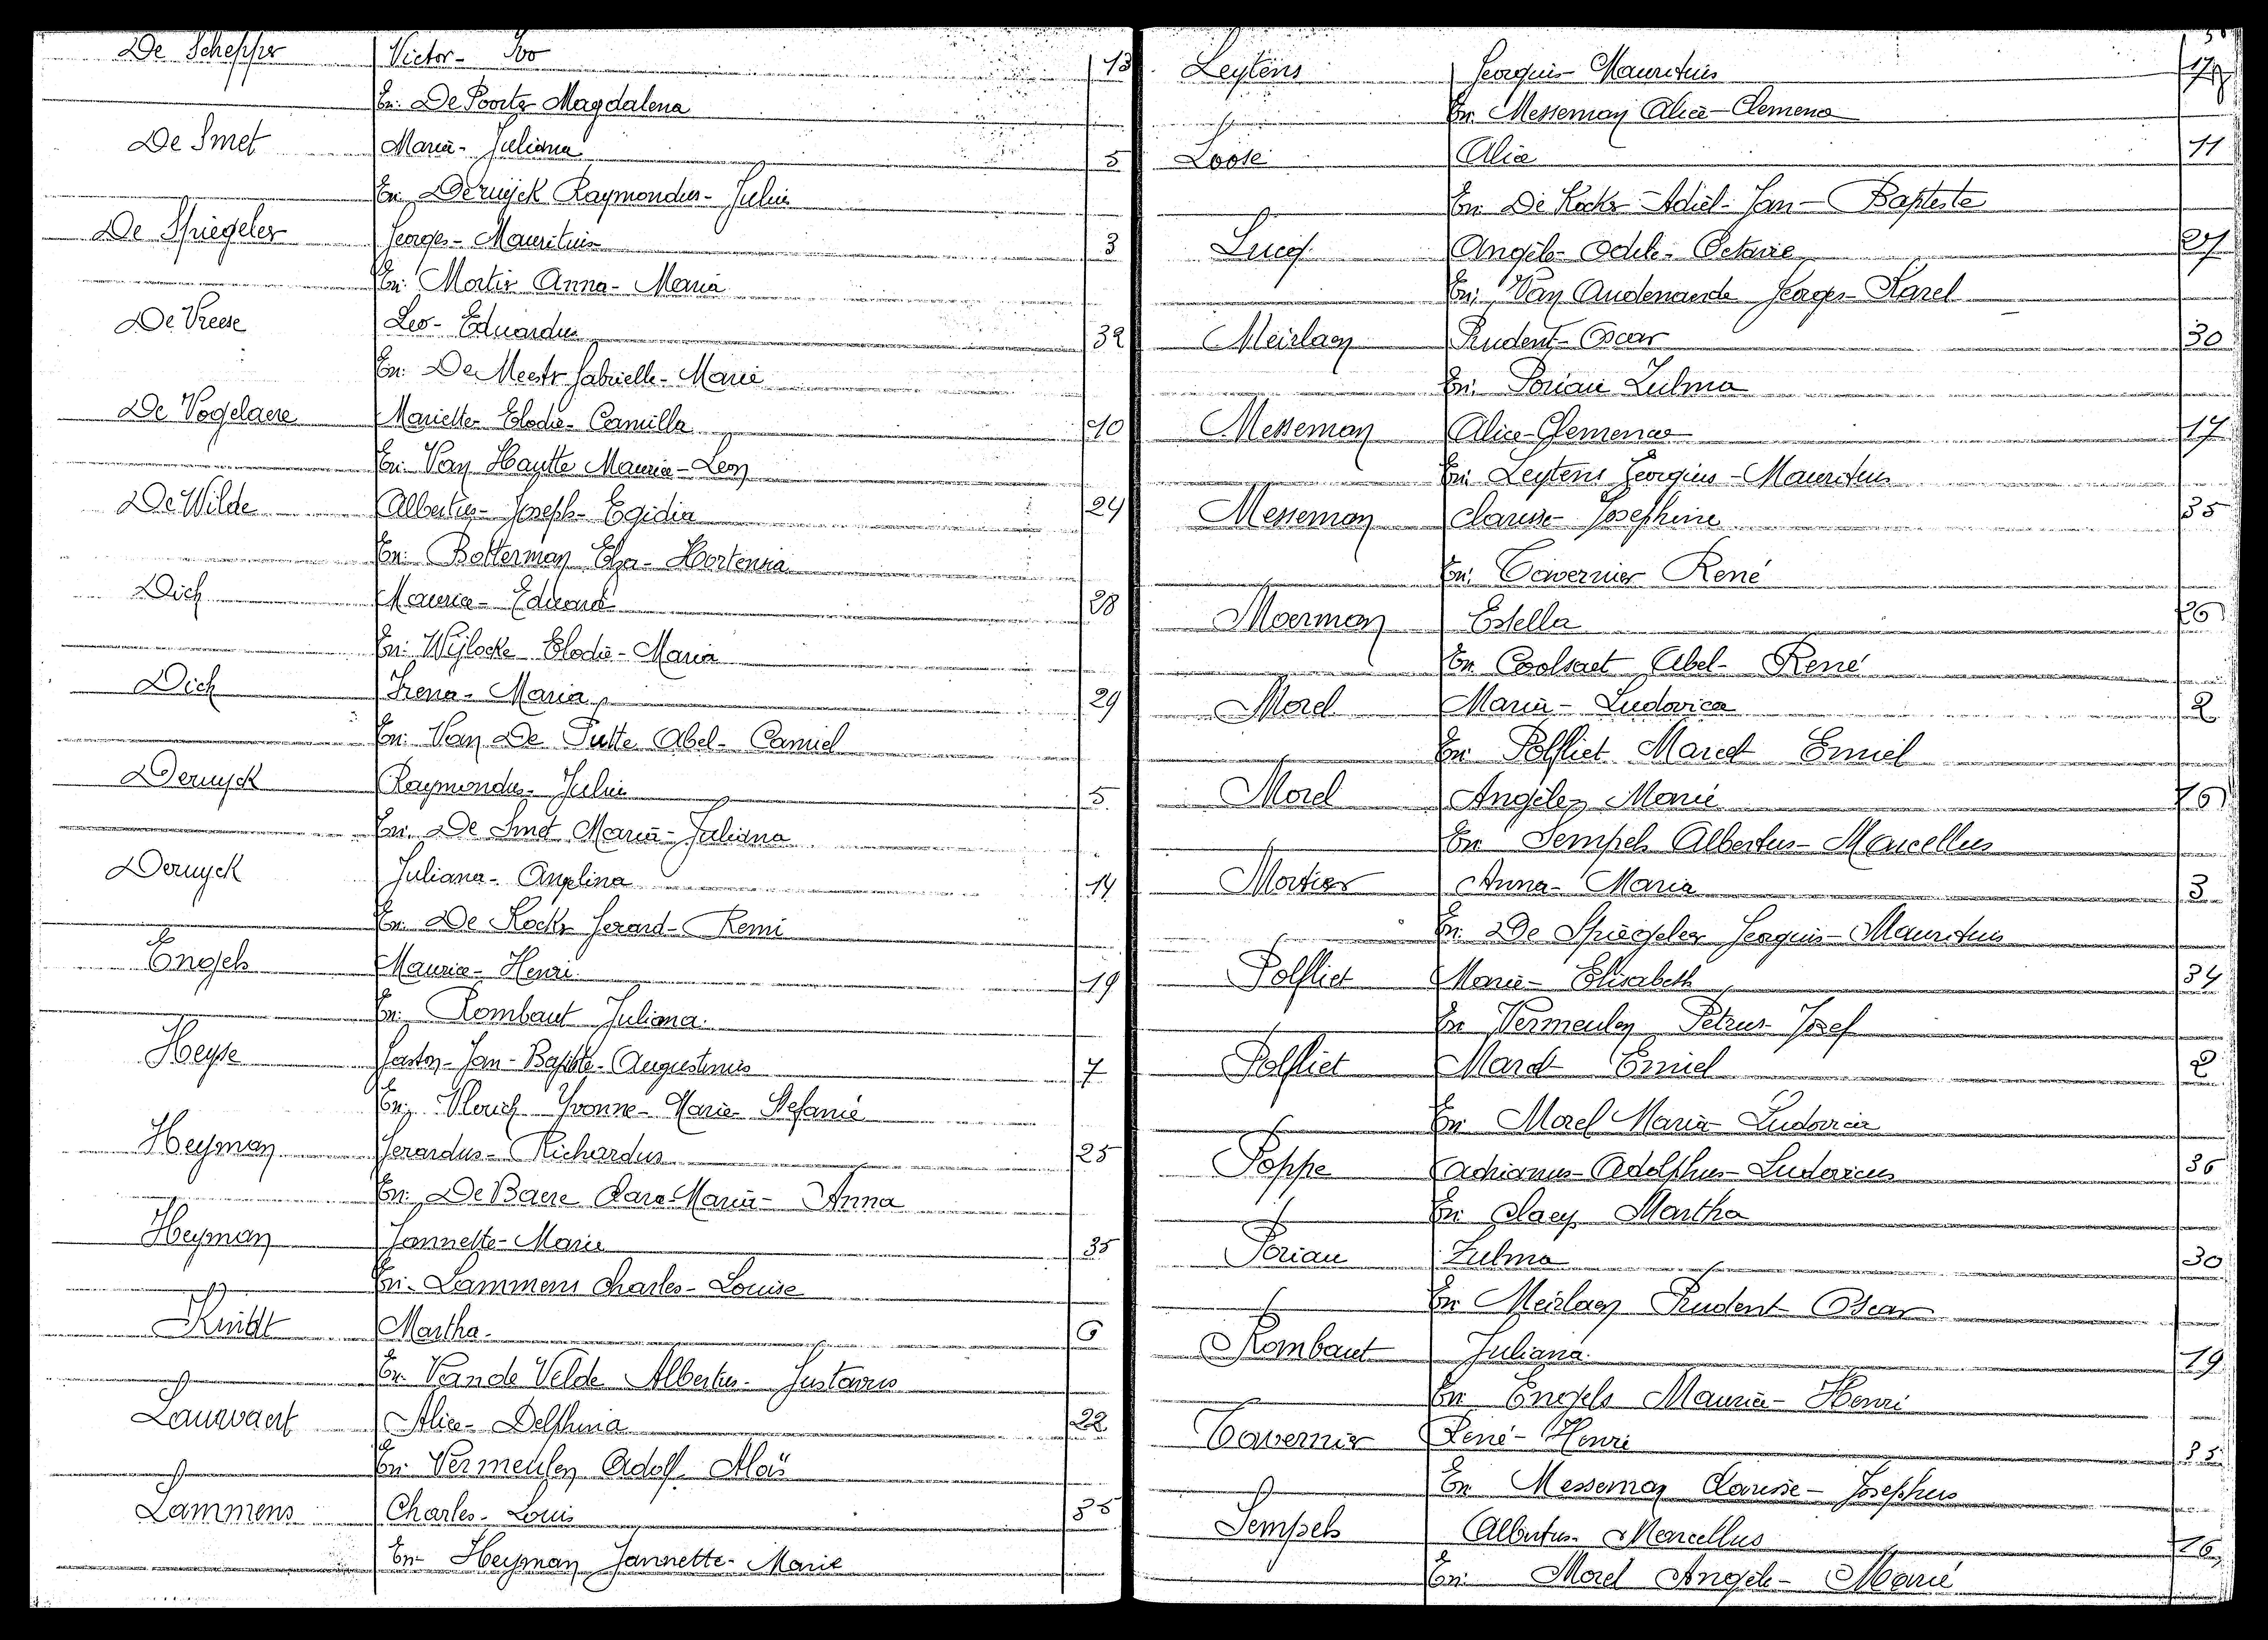 De Schepper Victor- Ivo 13
En: De Poorter Magdalena
De Smet Maria- Juliana 5
En: Deruyck Raymondus- Julius
De Spiegeler Georges- Mauritius 3
En: Mortier Anna- Maria
De Vreese Leo- Eduardus 32
En: De Meester Gabrielle- Marie
De Vogelaere Mariette- Elodie- Camilla 10
En: Van Hautte Maurice- Leon
De Wilde Albertus- Joseph- Egidia 24
En: Botterman Elza- Hortensia
Dich Maurice- Eduard 28
En: Wijlocke Elodie- Maria
Dich Irena- Maria 29
En: Van De Putte Abel- Camiel
Deruyck Raymondus- Julius 5
En: De Smet Maria- Juliana
Deruyck Juliana- Angelina 14
En: De Kocker Gerard- Remi
Engels Maurice- Henri 19
En: Rombaut Juliana.
Heyse Gaston- Jan- Baptiste- Augustinus 7
En: Yvonne- Marie- Stefanie
Heyman Gerardus- Richardus 25
En: De Baere Clara- Maria- Anna
Heyman Jannette- Marie 35
En- Lammens Charles- Louise
Kindt Martha. 6
En: Van de Velde Albertus- Gustavus
Lauwaert Alice- Delphina 22
En: Vermeulen Adolf Aloïs
Lammens Charles- Louis 35
En- Heyman Jannette- Marie
Leytens Georgius- Mauritius 17
En: Messeman Alice- Clemence
Loose Alice 11
En: De Kocker Adiel- Jan- Baptiste
Lucq Angèle- Odile- Octavie 27
En: Van Audenaerde Georges- Karel
Meirlaen Prudent- Oscar 30
En: Poriau Zulma
Messeman Alice- Clemence 17
En: Leytens Georgius- Mauritius
Messeman Clarisse- Josephine 35
En: Tavernier René
Moerman Estella 26
En: Coolsaet Abel- René
Morel Maria- Ludovica 2
En: Polfliet Marcel Emiel
Morel Angèle, Marie 16
En: Sempels Albertus- Marcellus
Mortier Anna- Maria 3
En: De Spiegeler Georgius- Mauritius
Polfliet Marie- Elisabeth 34
En: Vermeulen Petrus- Jozef
Polfliet Marcel Emiel 2
En: Morel Maria- Ludovica
Poppe Adrianus- Adolphus- Ludovicus 36
En: Claeys Martha
Poriau Zulma 30
En: Meirlaen Prudent- Oscar
Rombaut Juliana. 19
En: Engels Maurice- Henri
Tavernier René- Henri 35
En: Messeman Clarisse- Josephus
Sempels Albertus- Marcellus 16
En: Morel Angèle- Marie